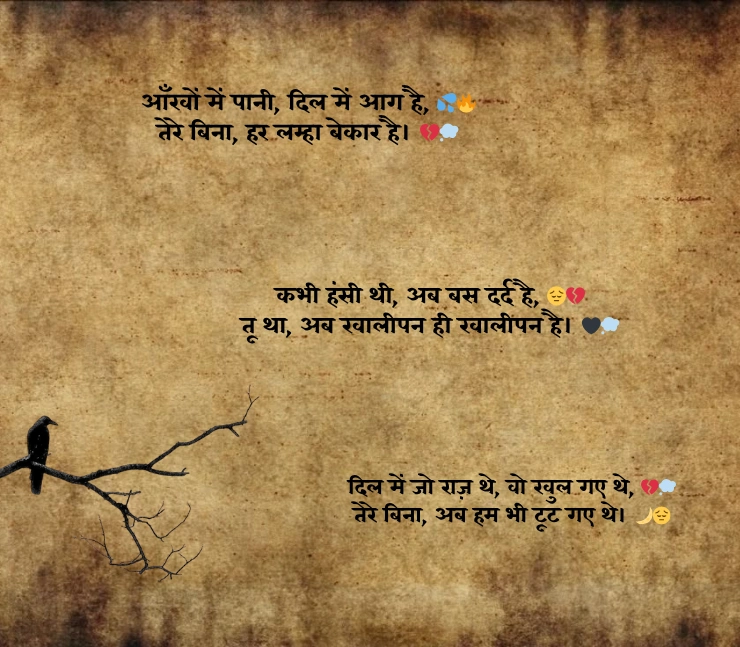 आँखों में पानी, दिल में आग है, 💦🔥
तेरे बिना, हर लम्हा बेकार है। 💔💭
कभी हंसी थी, अब बस दर्द है, 😔💔
तू था, अब खालीपन ही खालीपन है। 🖤💭
दिल में जो राज़ थे, वो खुल गए थे, 💔💭
तेरे बिना, अब हम भी टूट गए थे। 🌙😔